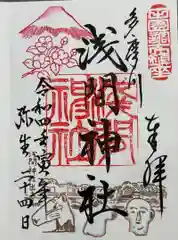 多摩川
奉拝
浅間神社
令和四壬寅年
弥生二十四日